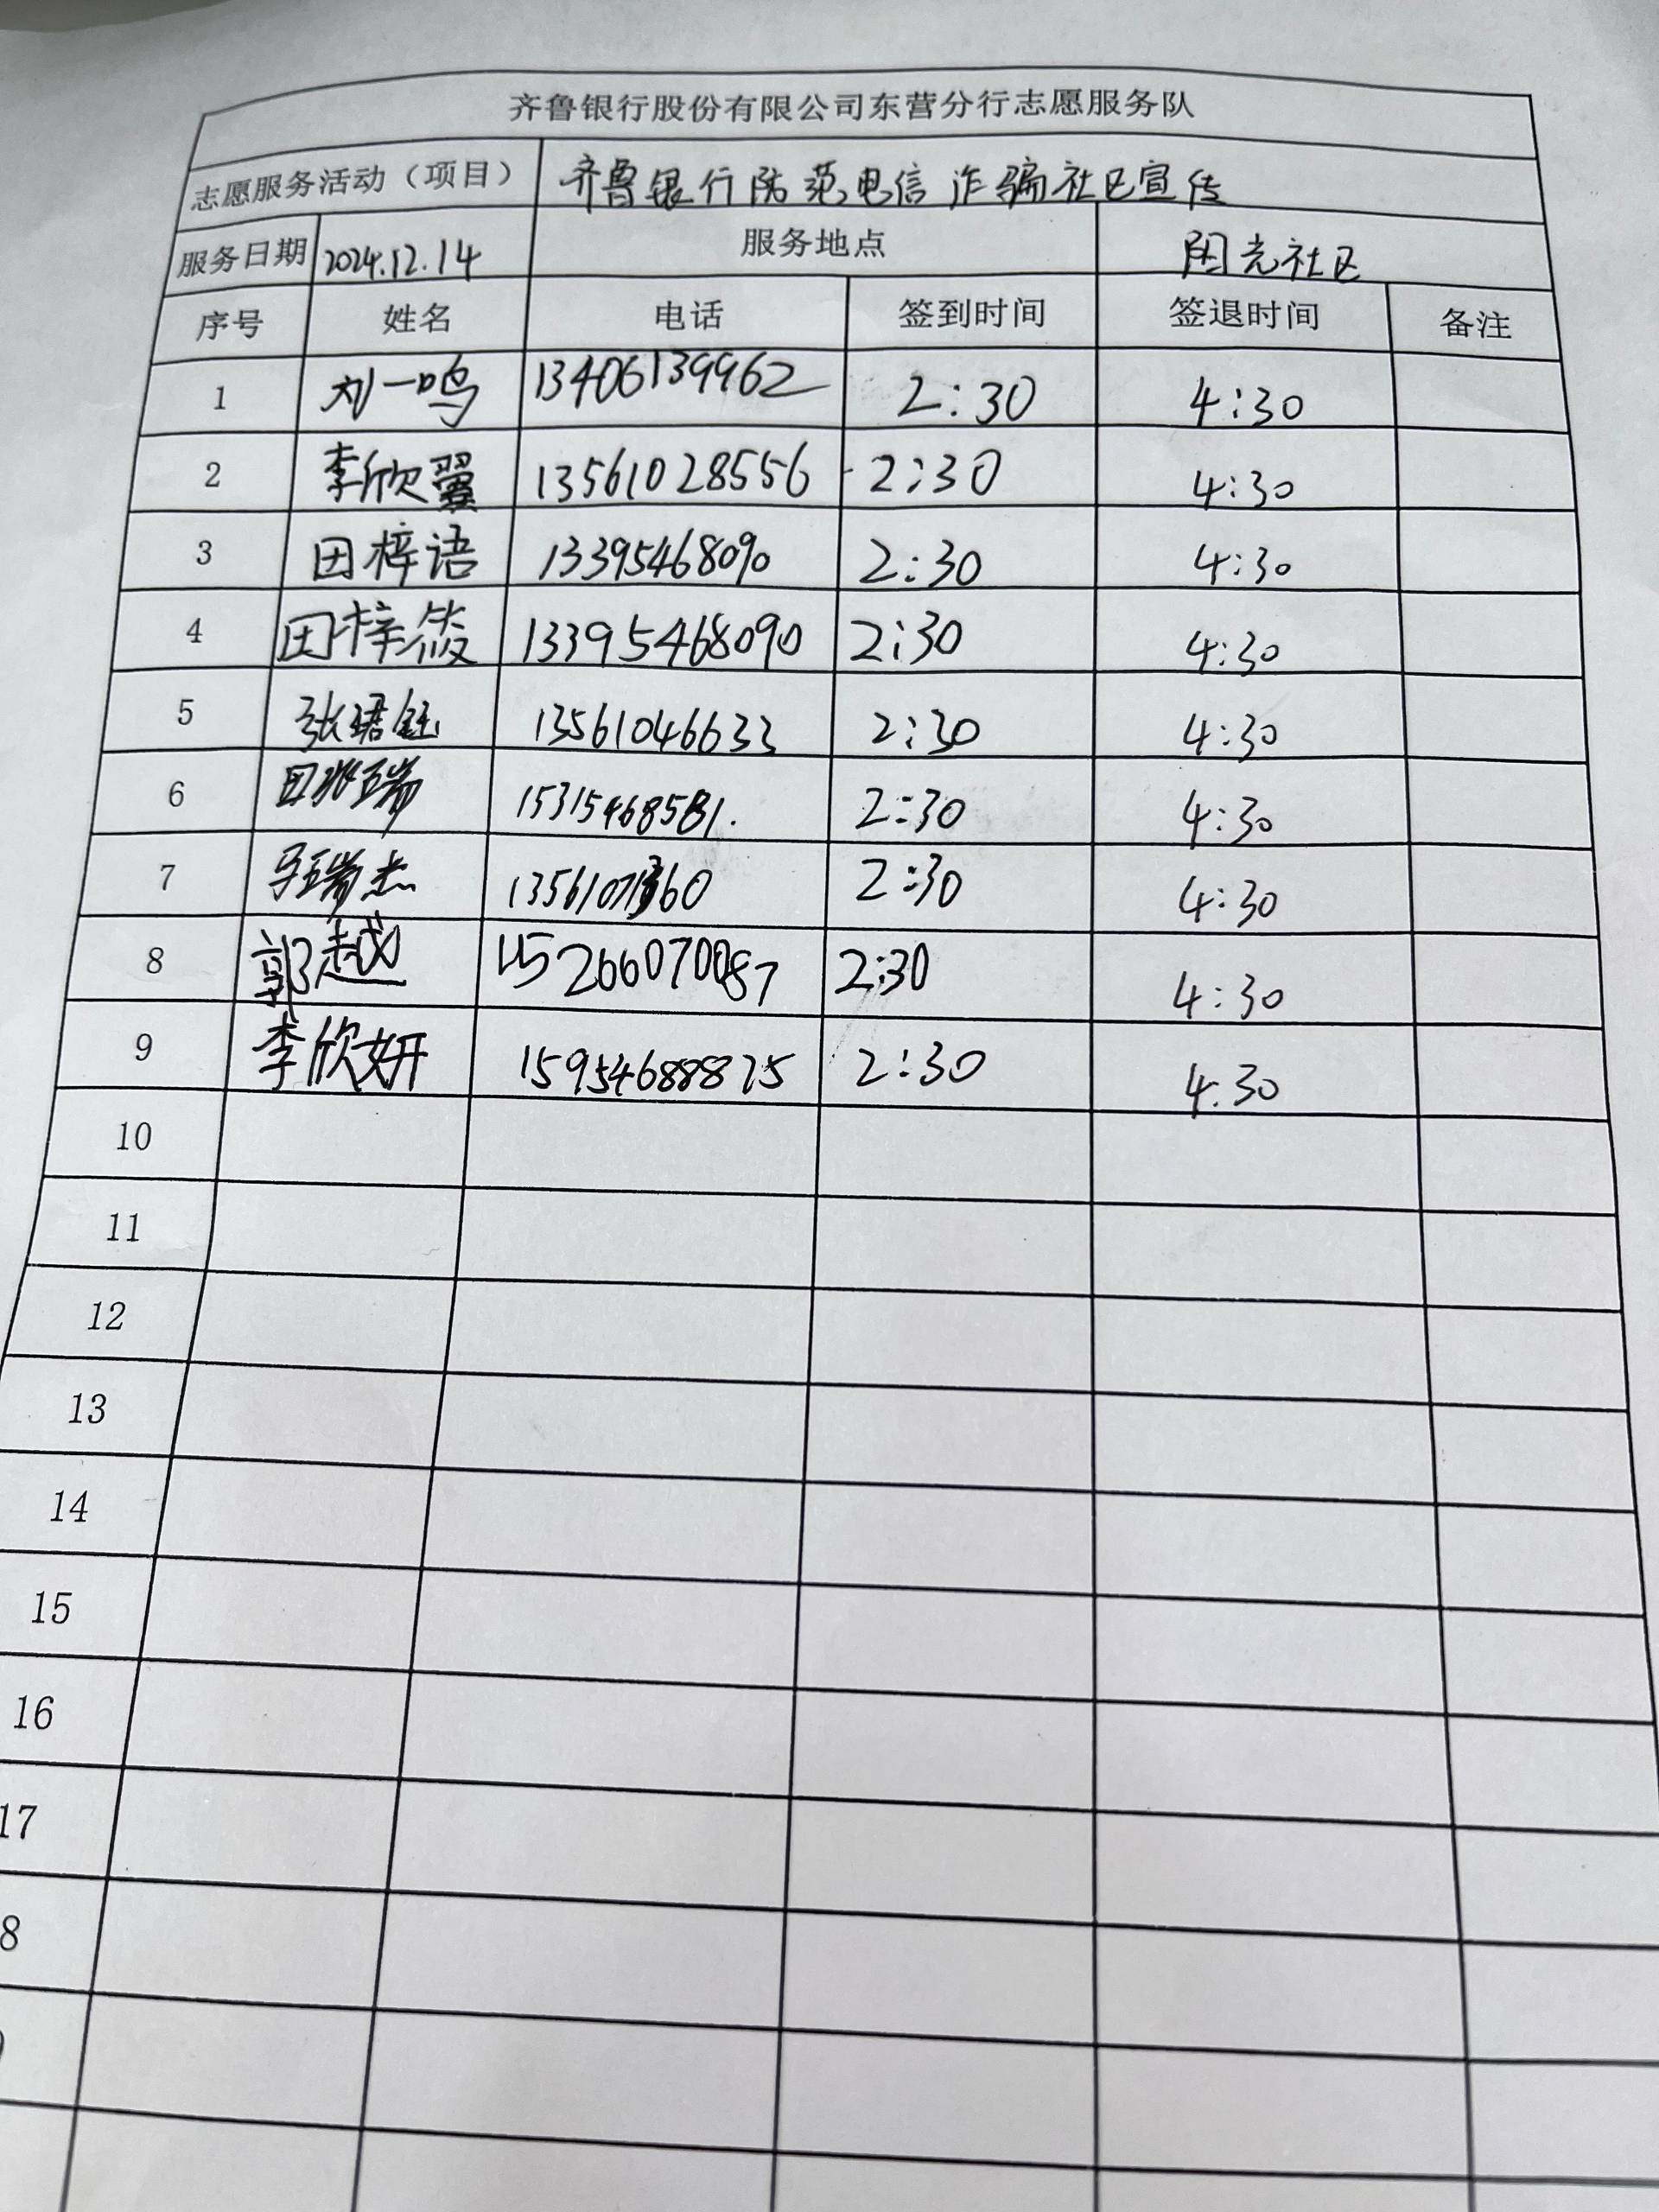 齐鲁银行股份有限公司东营分行志愿服务队
志愿服务活动（项目） 齐鲁银行防范电信诈骗社区宣传
服务日期 2024.12.14 服务地点 阳光社区
序号 姓名 电话 签到时间 签退时间 备注
1 刘一鸣 13406139962 2:30 4:30
2 李欣翼 13561028556 2:30 4:30
3 田梓语 13395468090 2:30 4:30
4 田梓筱 13395468090 2:30 4:30
5 张珺钰 13561046633 2:30 4:30
6 田兆瑞 15315468581. 2:30 4:30
7 瑞杰 2:30 4:30
8 郭越 15266070087 2:30 4:30
9 李欣妍 15954688875 2:30 4:30
10
11
12
13
14
15
16
17
8